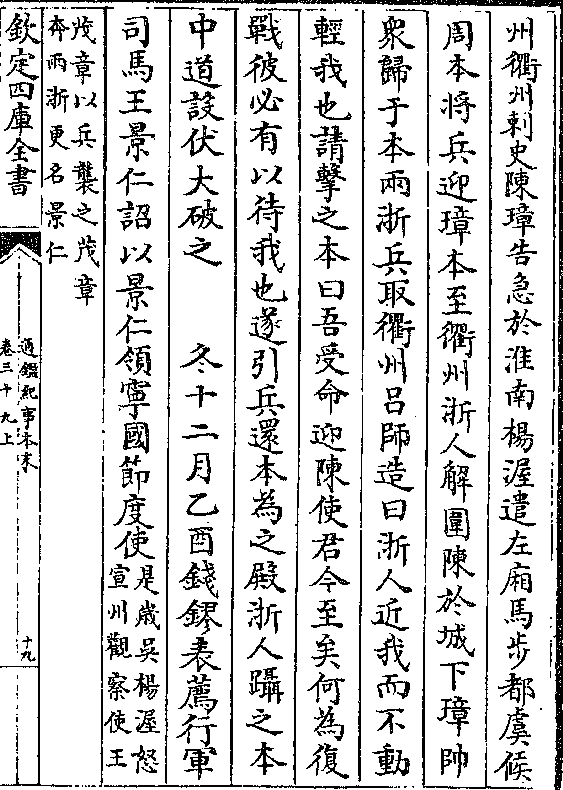 州衢州刺史陳璋告急於淮南楊渥遣左廂馬步都虞候
周本將兵迎璋本至衢州浙人解圍陳於城下璋帥
衆歸于本兩浙兵取衢州吕師造曰浙人近我而不動
輕我也請擊之本曰吾受命迎陳使君今至矣何為復
戰彼必有以待我也遂引兵還本為之殿浙人躡之本
中道設伏大破之　　冬十二月乙酉錢鏐表薦行軍
司馬王景仁詔以景仁領寧國節度使是歲吳楊渥怒
宣州觀察使王
茂章以兵襲之茂章
奔兩浙更名景仁
欽定四庫全書
通鑑紀事本末
卷三十九上
十九